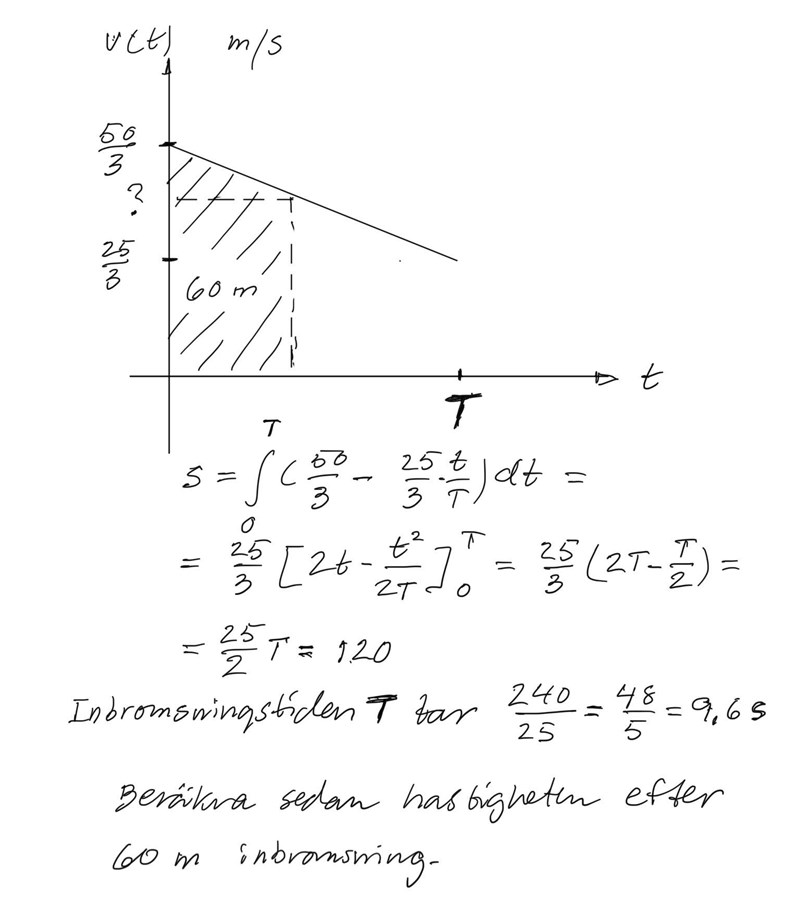 v(t) m/s
50/3
?
25/3
60 m
t
T
s = ∫₀ᵀ (50/3 - 25/3 · t/T) dt =
= 25/3 [2t - t²/2T]₀ᵀ = 25/3 (2T - T/2) =
= 25/2 T = 120
Inbromsningstiden T tar 240/25 = 48/5 = 9,6 s
Beräkna sedan hastigheten efter
60 m inbromsning.